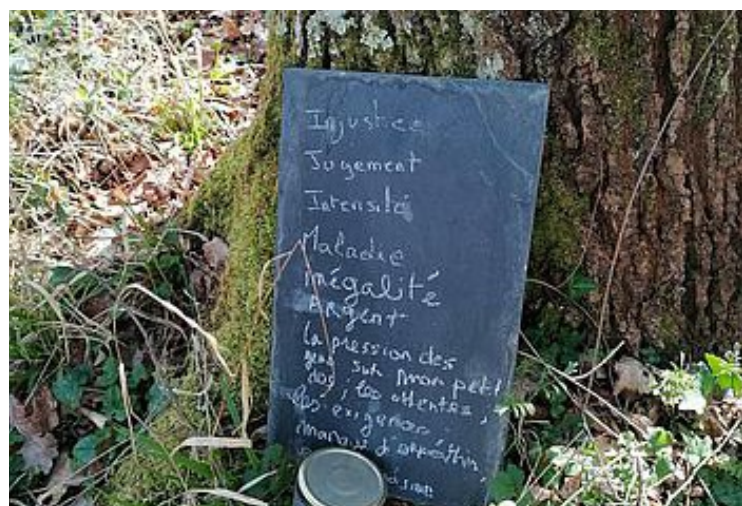 Injustice
Jugement
Intensité
Maladie
Inégalité
Argent
la pression des
gens sur mon petit
dos, les attentes,
les exigences,
manque d'empathie,